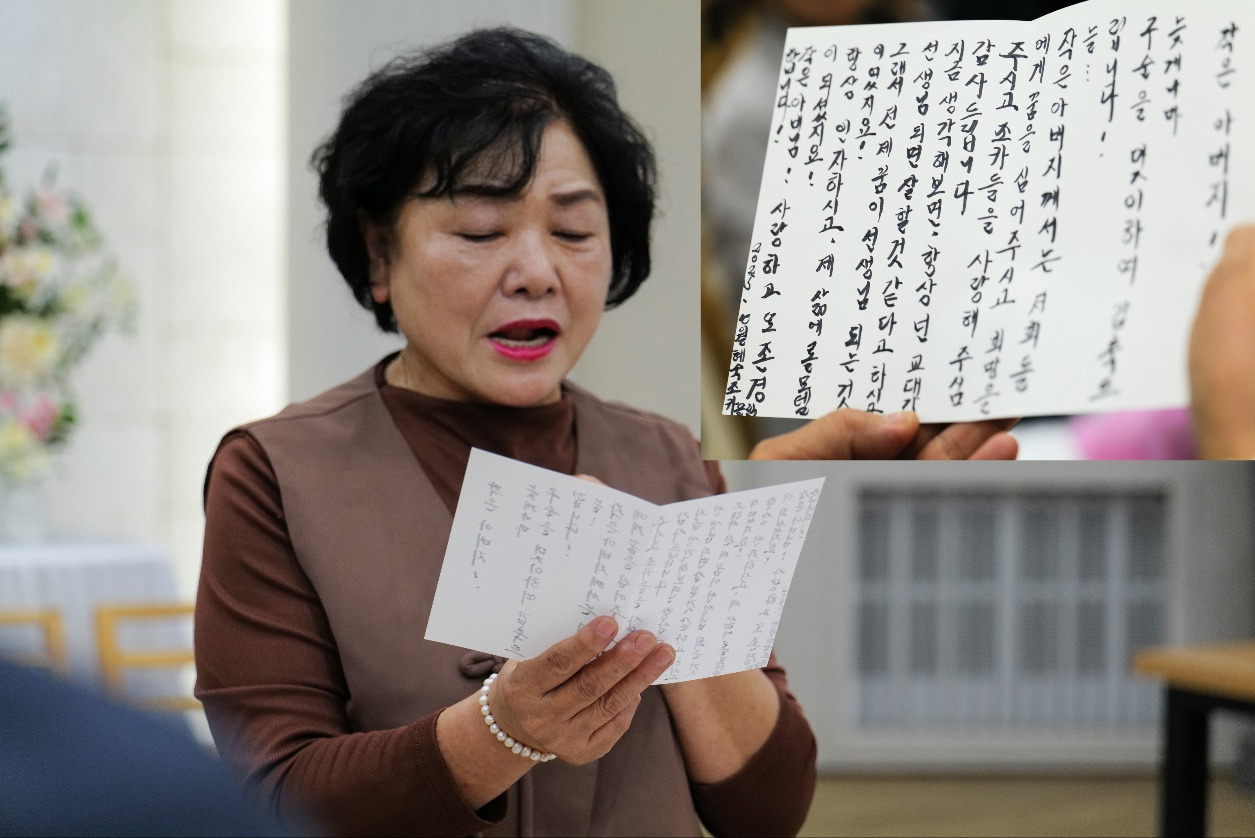 작은 아버지!
늦게나마
구순을 맞이하여 감축드
립니다!
늘...
작은아버지께서는 저희들
에게 꿈을 심어주시고 희망을
주시고 조카들을 사랑해 주심
감사드립니다
지금 생각해보면, 항상 넌 교대가
선생님 되면 잘할것 같다고 하시고
그래서 전 제 꿈이 선생님 되는것
이었지요!
항상 인자하시고, 제 삶에 롤모델
이 되셨지요!
작은아버님! 사랑하고 또 존경
합니다!
혜숙조카